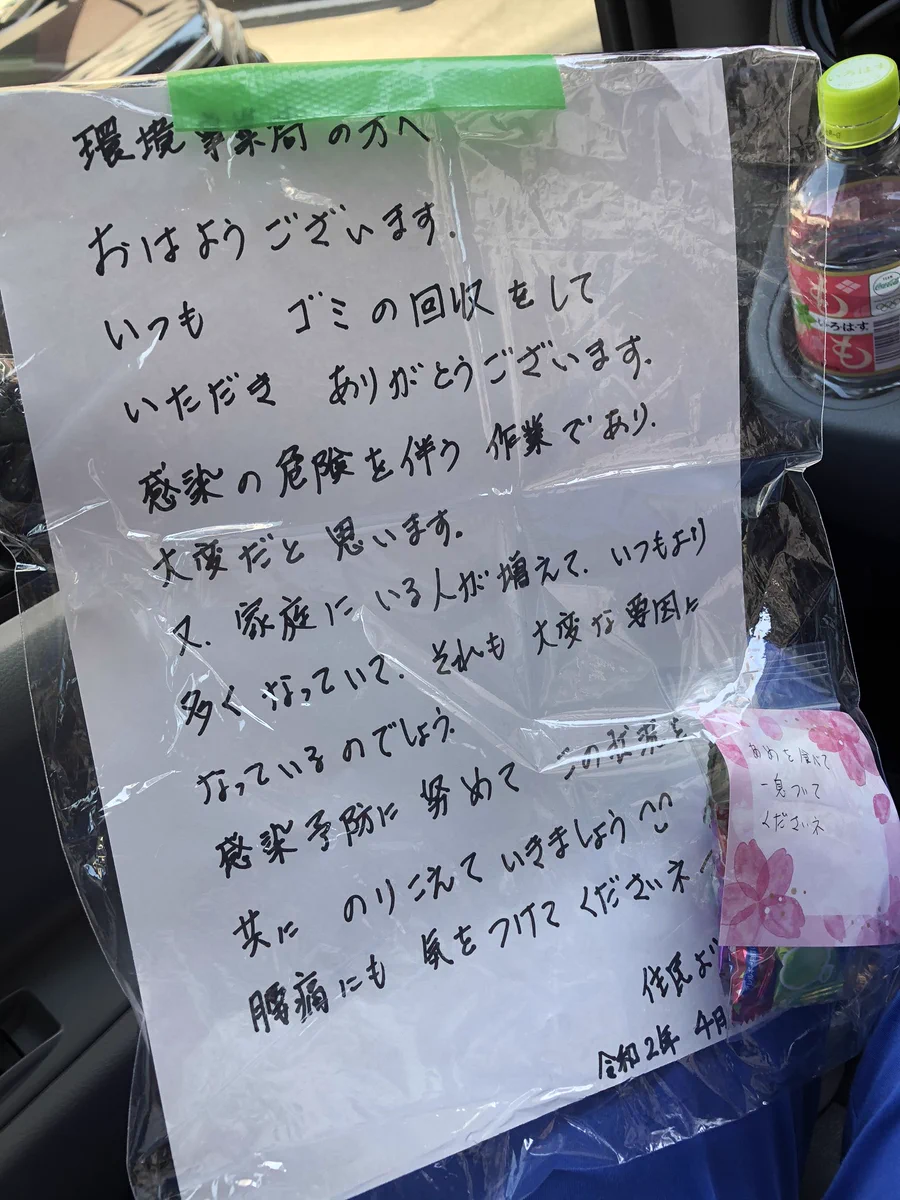 環境事業局の方へ
おはようございます.
いつも ゴミの回収をして
いただき ありがとうございます.
感染の危険を伴う 作業であり.
大変だと思います.
又、家庭にいる人が増えて、いつもより
多くなっていて、それも大変な要因に
なっているのでしょう.
感染予防に努めて この状況を
共に のりこえていきましょう
腰痛にも気をつけてくださいネ
住民より
令和2年 4月
あめを食べて
一息ついて
くださいネ
もも
い・ろ・は・す